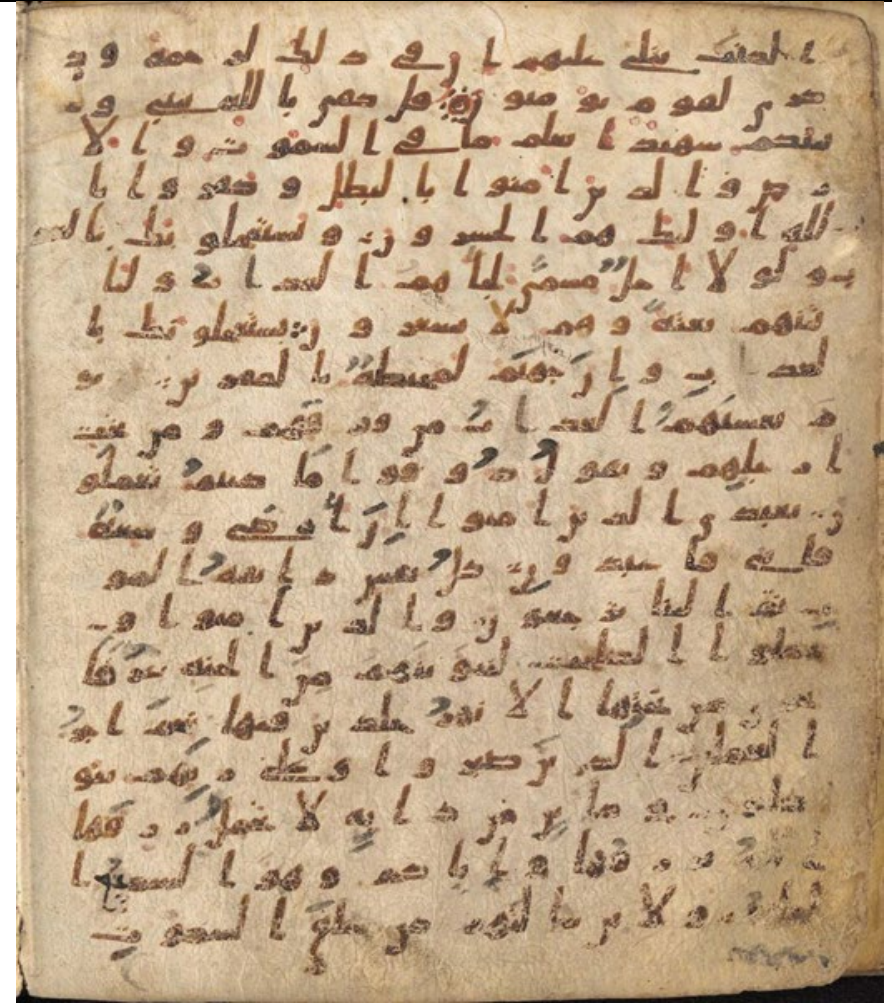 الكتب يتلى عليهم ان في ذلك لرحمة و ذ
كرى لقوم يومنون قل كفى بالله بيني و
بينكم شهيدا يعلم ما في السموت و الا
رض و الذين امنوا بالبطل و كفروا با
لله اولئك هم الخسرون و يستعجلونك بالعذ
اب و لولا اجل مسمى لجاهم العذاب و ليا
تينهم بغتة و هم لا يشعرون يستعجلونك با
لعذاب و ان جهنم لمحيطة بالكفرين يو
م يغشيهم العذاب من فوقهم و من تحت
ارجلهم و يقول ذوقوا ما كنتم تعملو
ن يعبدي الذين امنوا ان ارضي وسعة
فايي فاعبدون كل نفس ذائقة المو
ت ثم الينا ترجعون و الذين امنوا و
عملوا الصلحت لنبوينهم من الجنة غرفا
تجري من تحتها الانهر خلدين فيها نعم اجر
العملين الذين صبروا و على ربهم يتو
كلون و كاين من دابة لا تحمل رزقها
الله يرزقها و اياكم و هو السميع ا
لعليم و لين سالتهم من خلق السموت